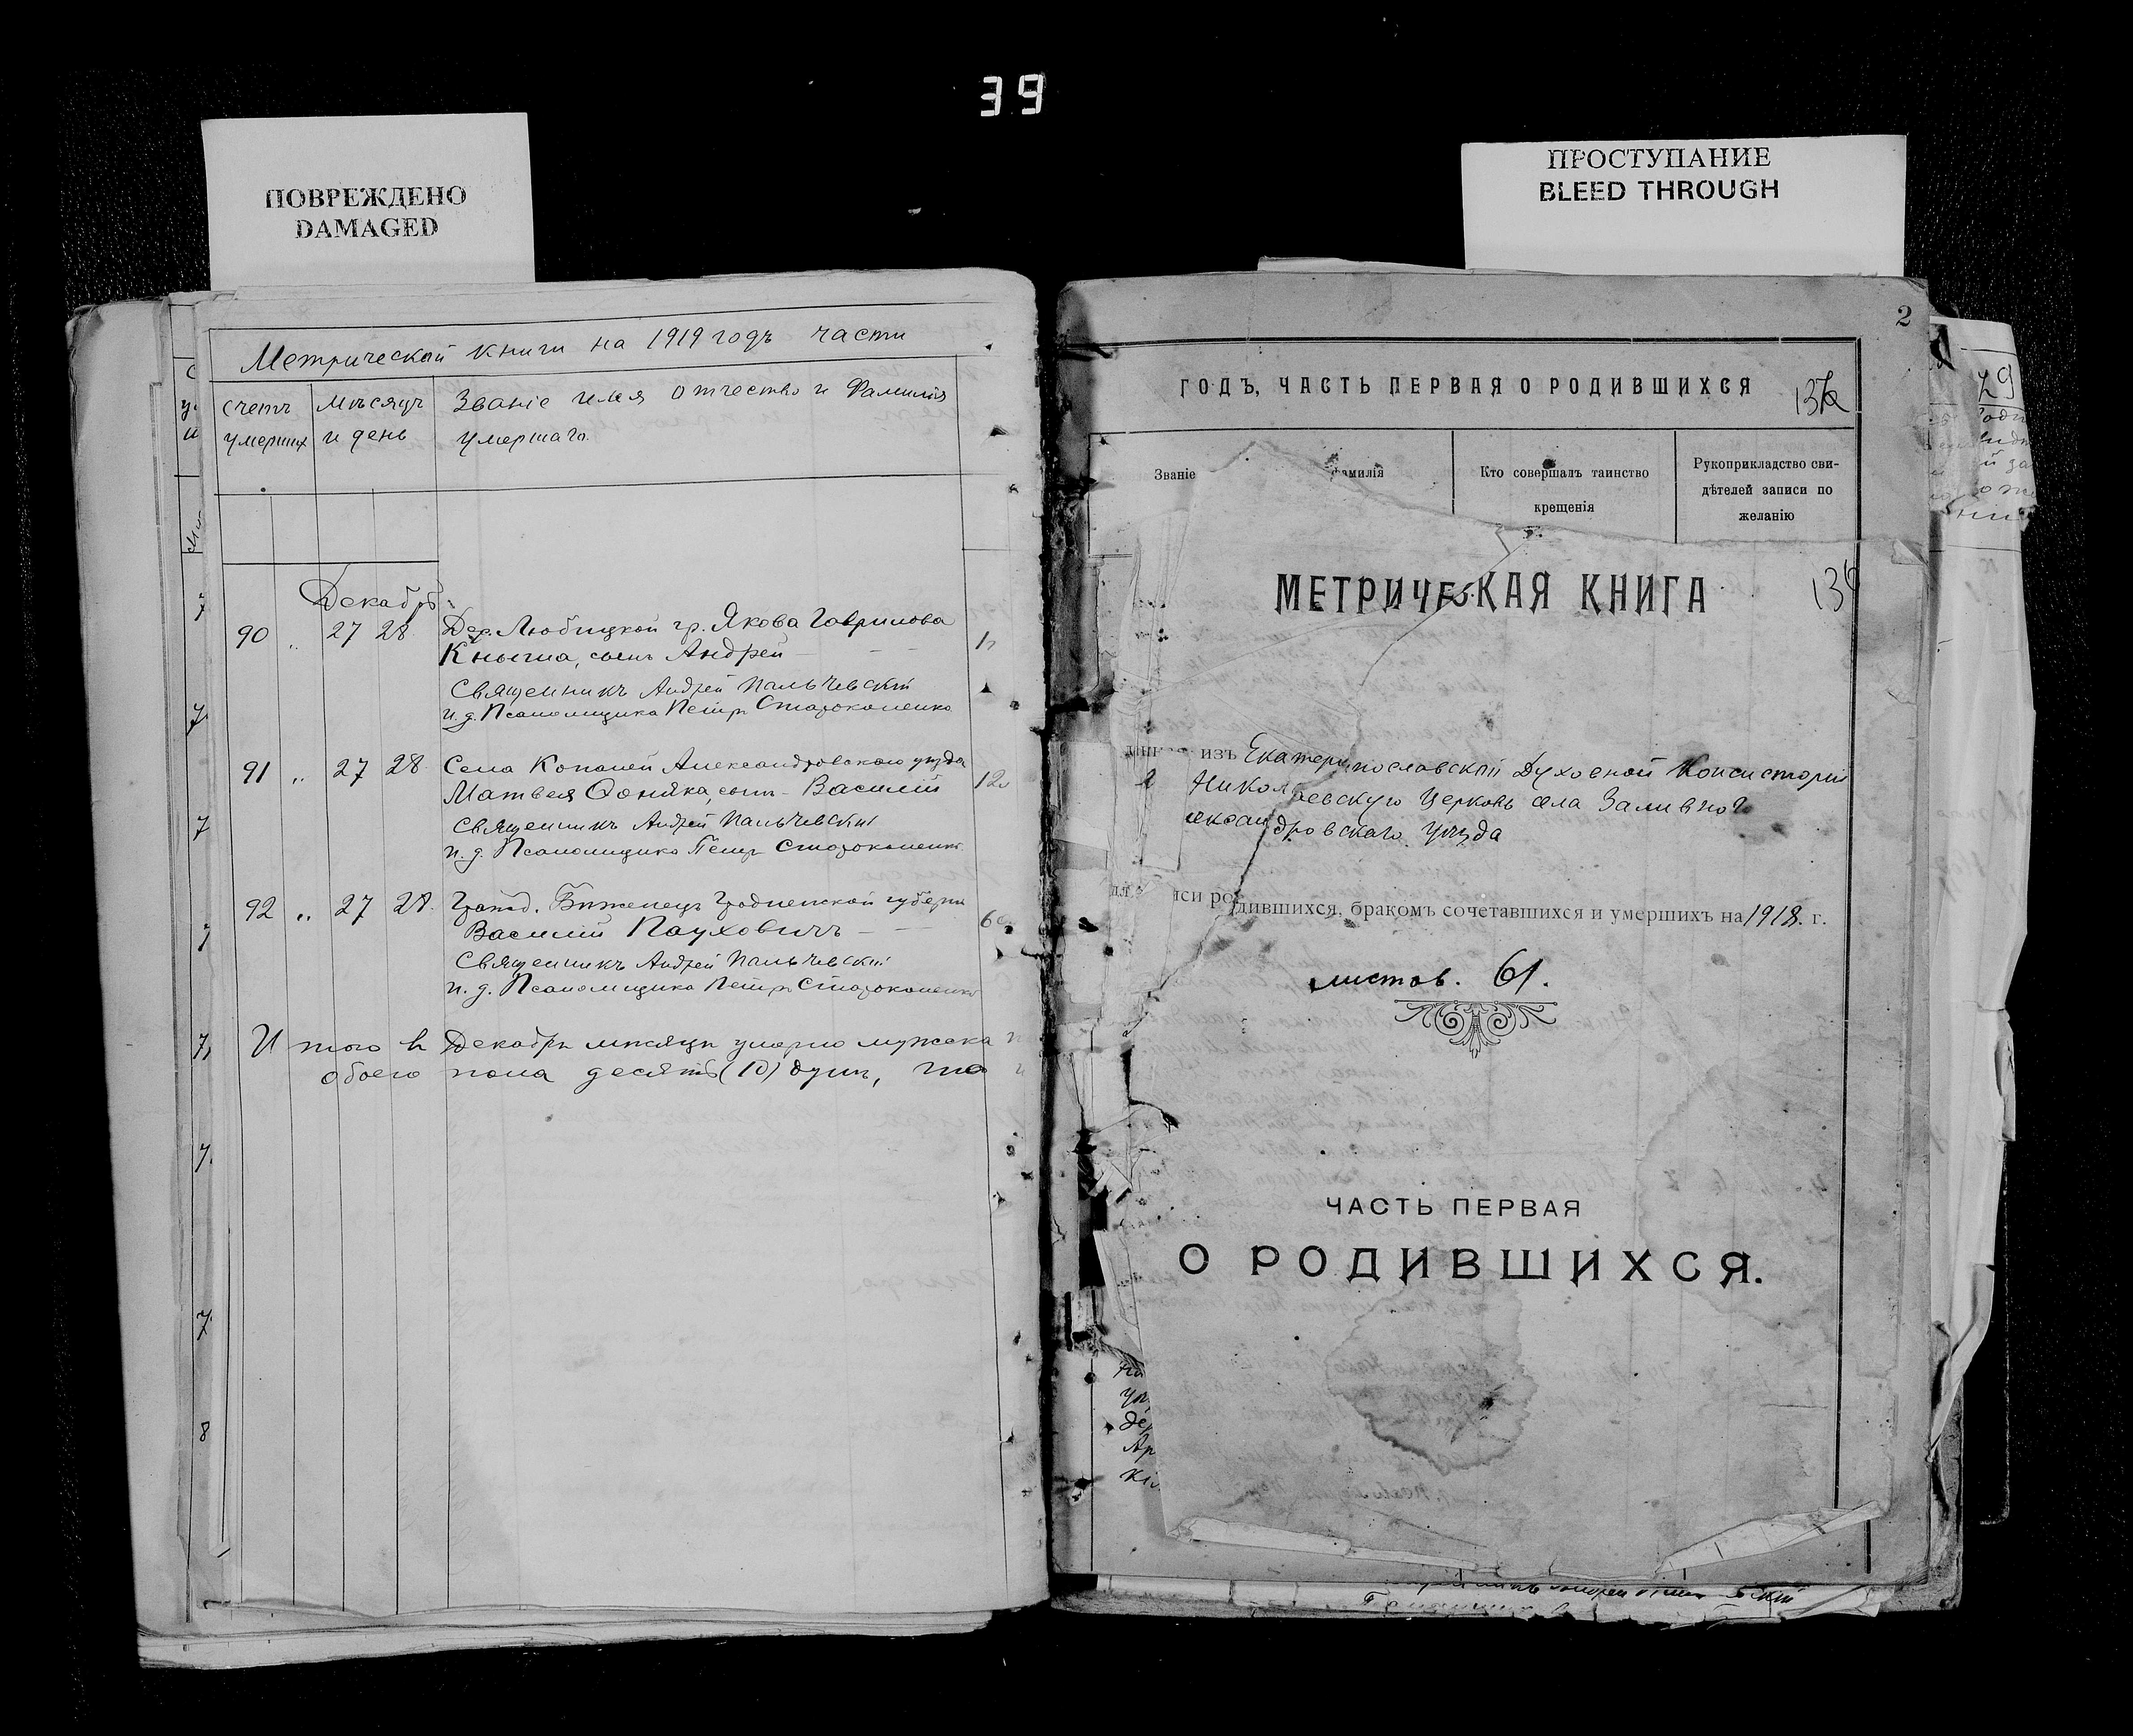 39
ПОВРЕЖДЕНО
DAMAGED
ПРОСТУПАНИЕ
BLEED THROUGH
Метрической книги на 1919 годъ части
счетъ умерших
Мѣсяцъ и день
Званіе имя отчество и Фамилія
умершаго.
Декабрь
90 " 27 28 Дер. Любицкой гр. Якова Гаврилова
сынъ Андрей
Священникъ Андрей Пальчевскій
и. д. Псаломщика Петръ Староконенко
91 " 27 28 Села Копаней Александровскаго уѣзда
Матвея сынъ - Василій 12
Священникъ Андрей Пальчевскій
и. д. Псаломщика Петръ Староконенко
92 " 27 28. Гражд. Бѣженецъ Гродненской губерн
Василій Пауховичъ
Священникъ Андрей Пальчевскій
и. д. Псаломщика Петръ Староконенко
Итого въ Декабрѣ мѣсяцѣ умерло мужска
обоего пола десять (10) душъ, что
2
ГОДЪ, ЧАСТЬ ПЕРВАЯ О РОДИВШИХСЯ
Званіе
амилія
Кто совершалъ таинство
крещенія
Рукоприкладство сви-
дѣтелей записи по
желанію
МЕТРИЧЕСКАЯ КНИГА
изъ Екатеринославской Духовной Консисторіи
Николаевскую Церковь села Заливного
ександровскаго уѣзда
иси родившихся, бракомъ сочетавшихся и умершихъ на 1918. г.
листов. 61.
ЧАСТЬ ПЕРВАЯ
О РОДИВШИХСЯ.